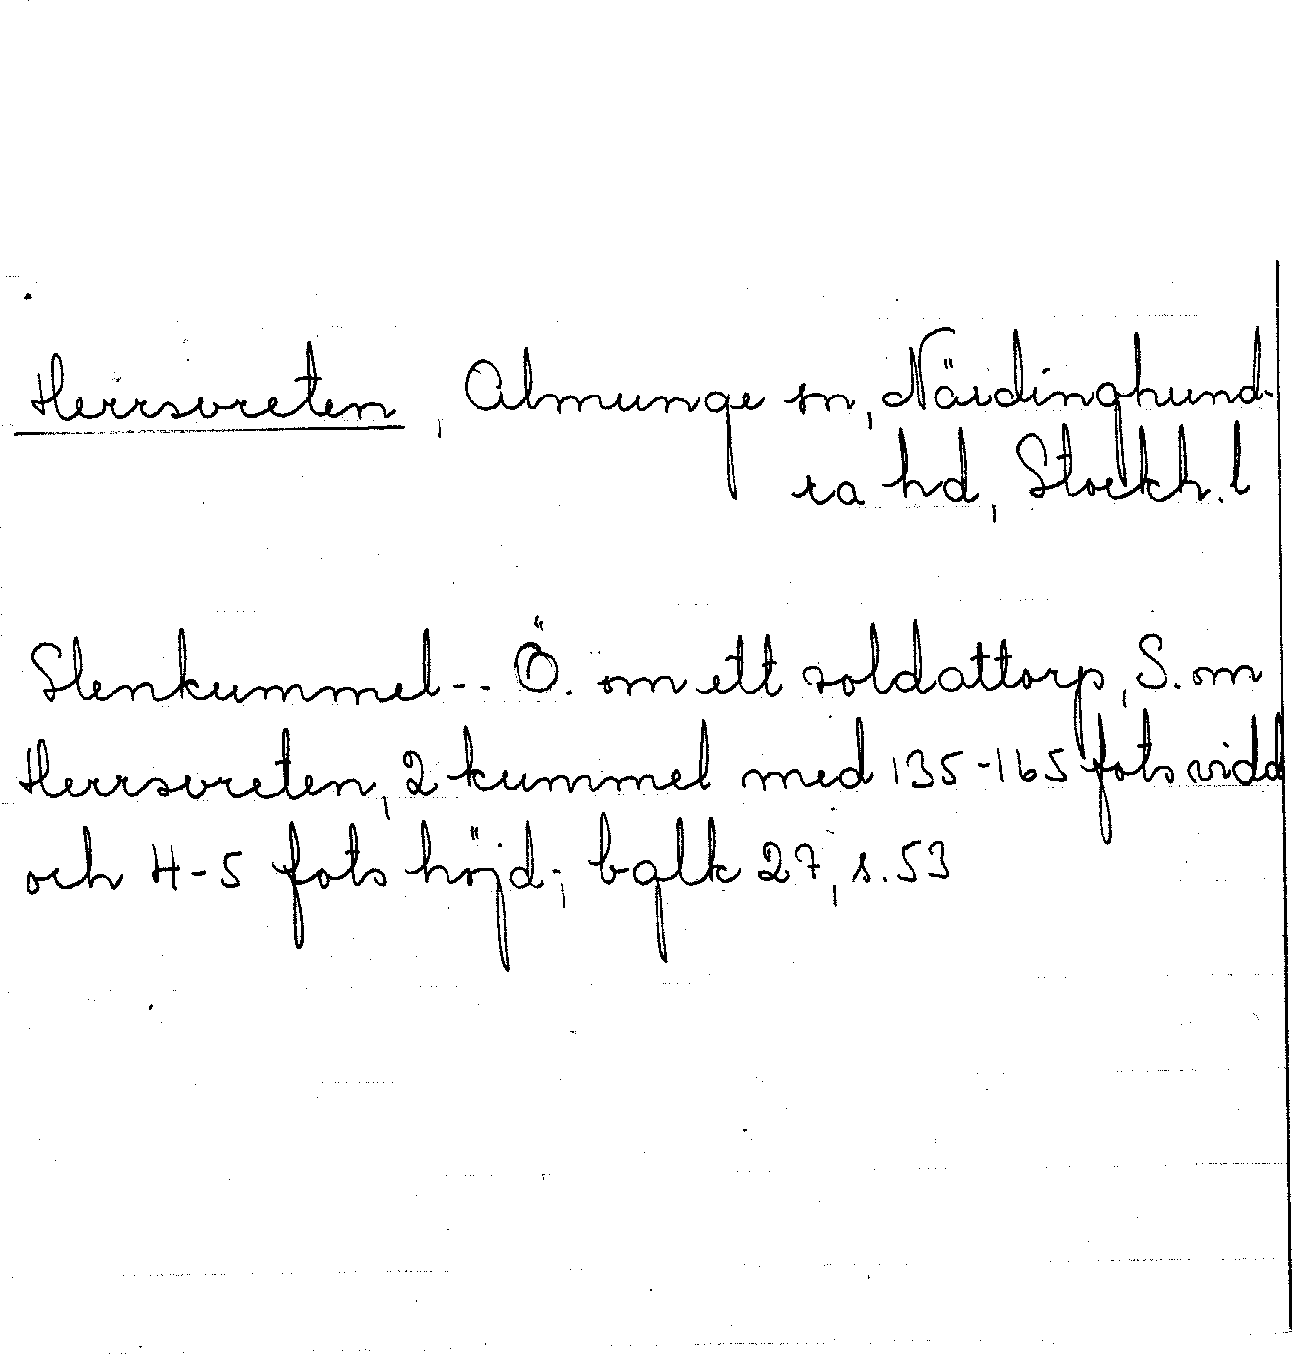 Herrsvreten, Almunge sn, Närdinghund-
ra hd, Stockh. l
Stenkummel-- Ö. om ett soldattorp, S. om
Herrsvreten, 2 kummel med 135-165 fots vidd
och 4-5 fots höjd-; bglk 27, s. 53